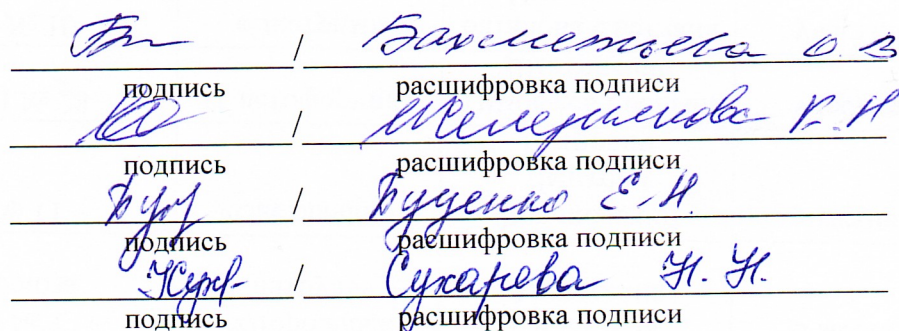 / Бахметьева О. В
подпись расшифровка подписи
/ К. Н
подпись расшифровка подписи
/ Буценко Е. Н.
подпись расшифровка подписи
/ Сухарева Н. Н.
подпись расшифровка подписи